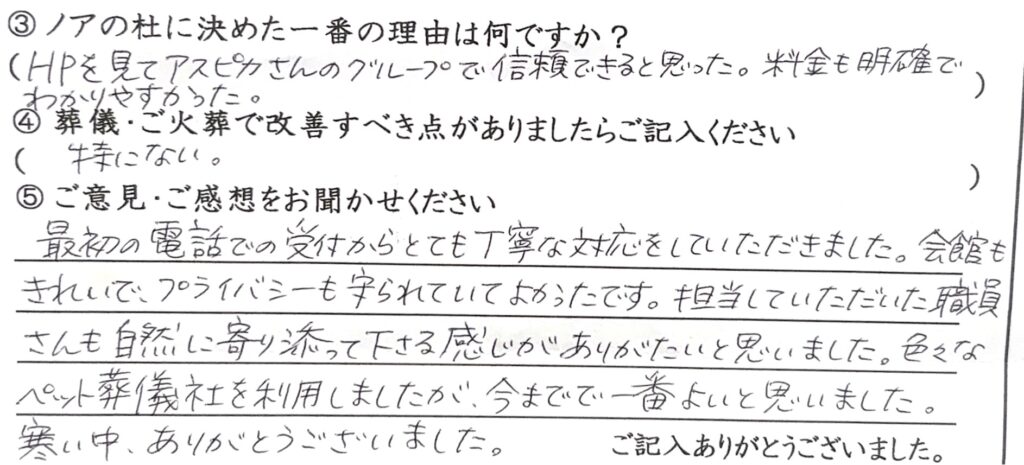 ③ ノアの杜に決めた一番の理由は何ですか？
(HPを見てアスピカさんのグループで信頼できると思った。料金も明確で
わかりやすかった。)
④ 葬儀・ご火葬で改善すべき点がありましたらご記入ください
(特にない。)
⑤ ご意見・ご感想をお聞かせください
最初の電話での受付からとても丁寧な対応をしていただきました。会館も
きれいで、プライバシーも守られていてよかったです。担当していただいた職員
さんも自然に寄り添って下さる感じがありがたいと思いました。色々な
ペット葬儀社を利用しましたが、今までで一番よいと思いました。
寒い中、ありがとうございました。 ご記入ありがとうございました。